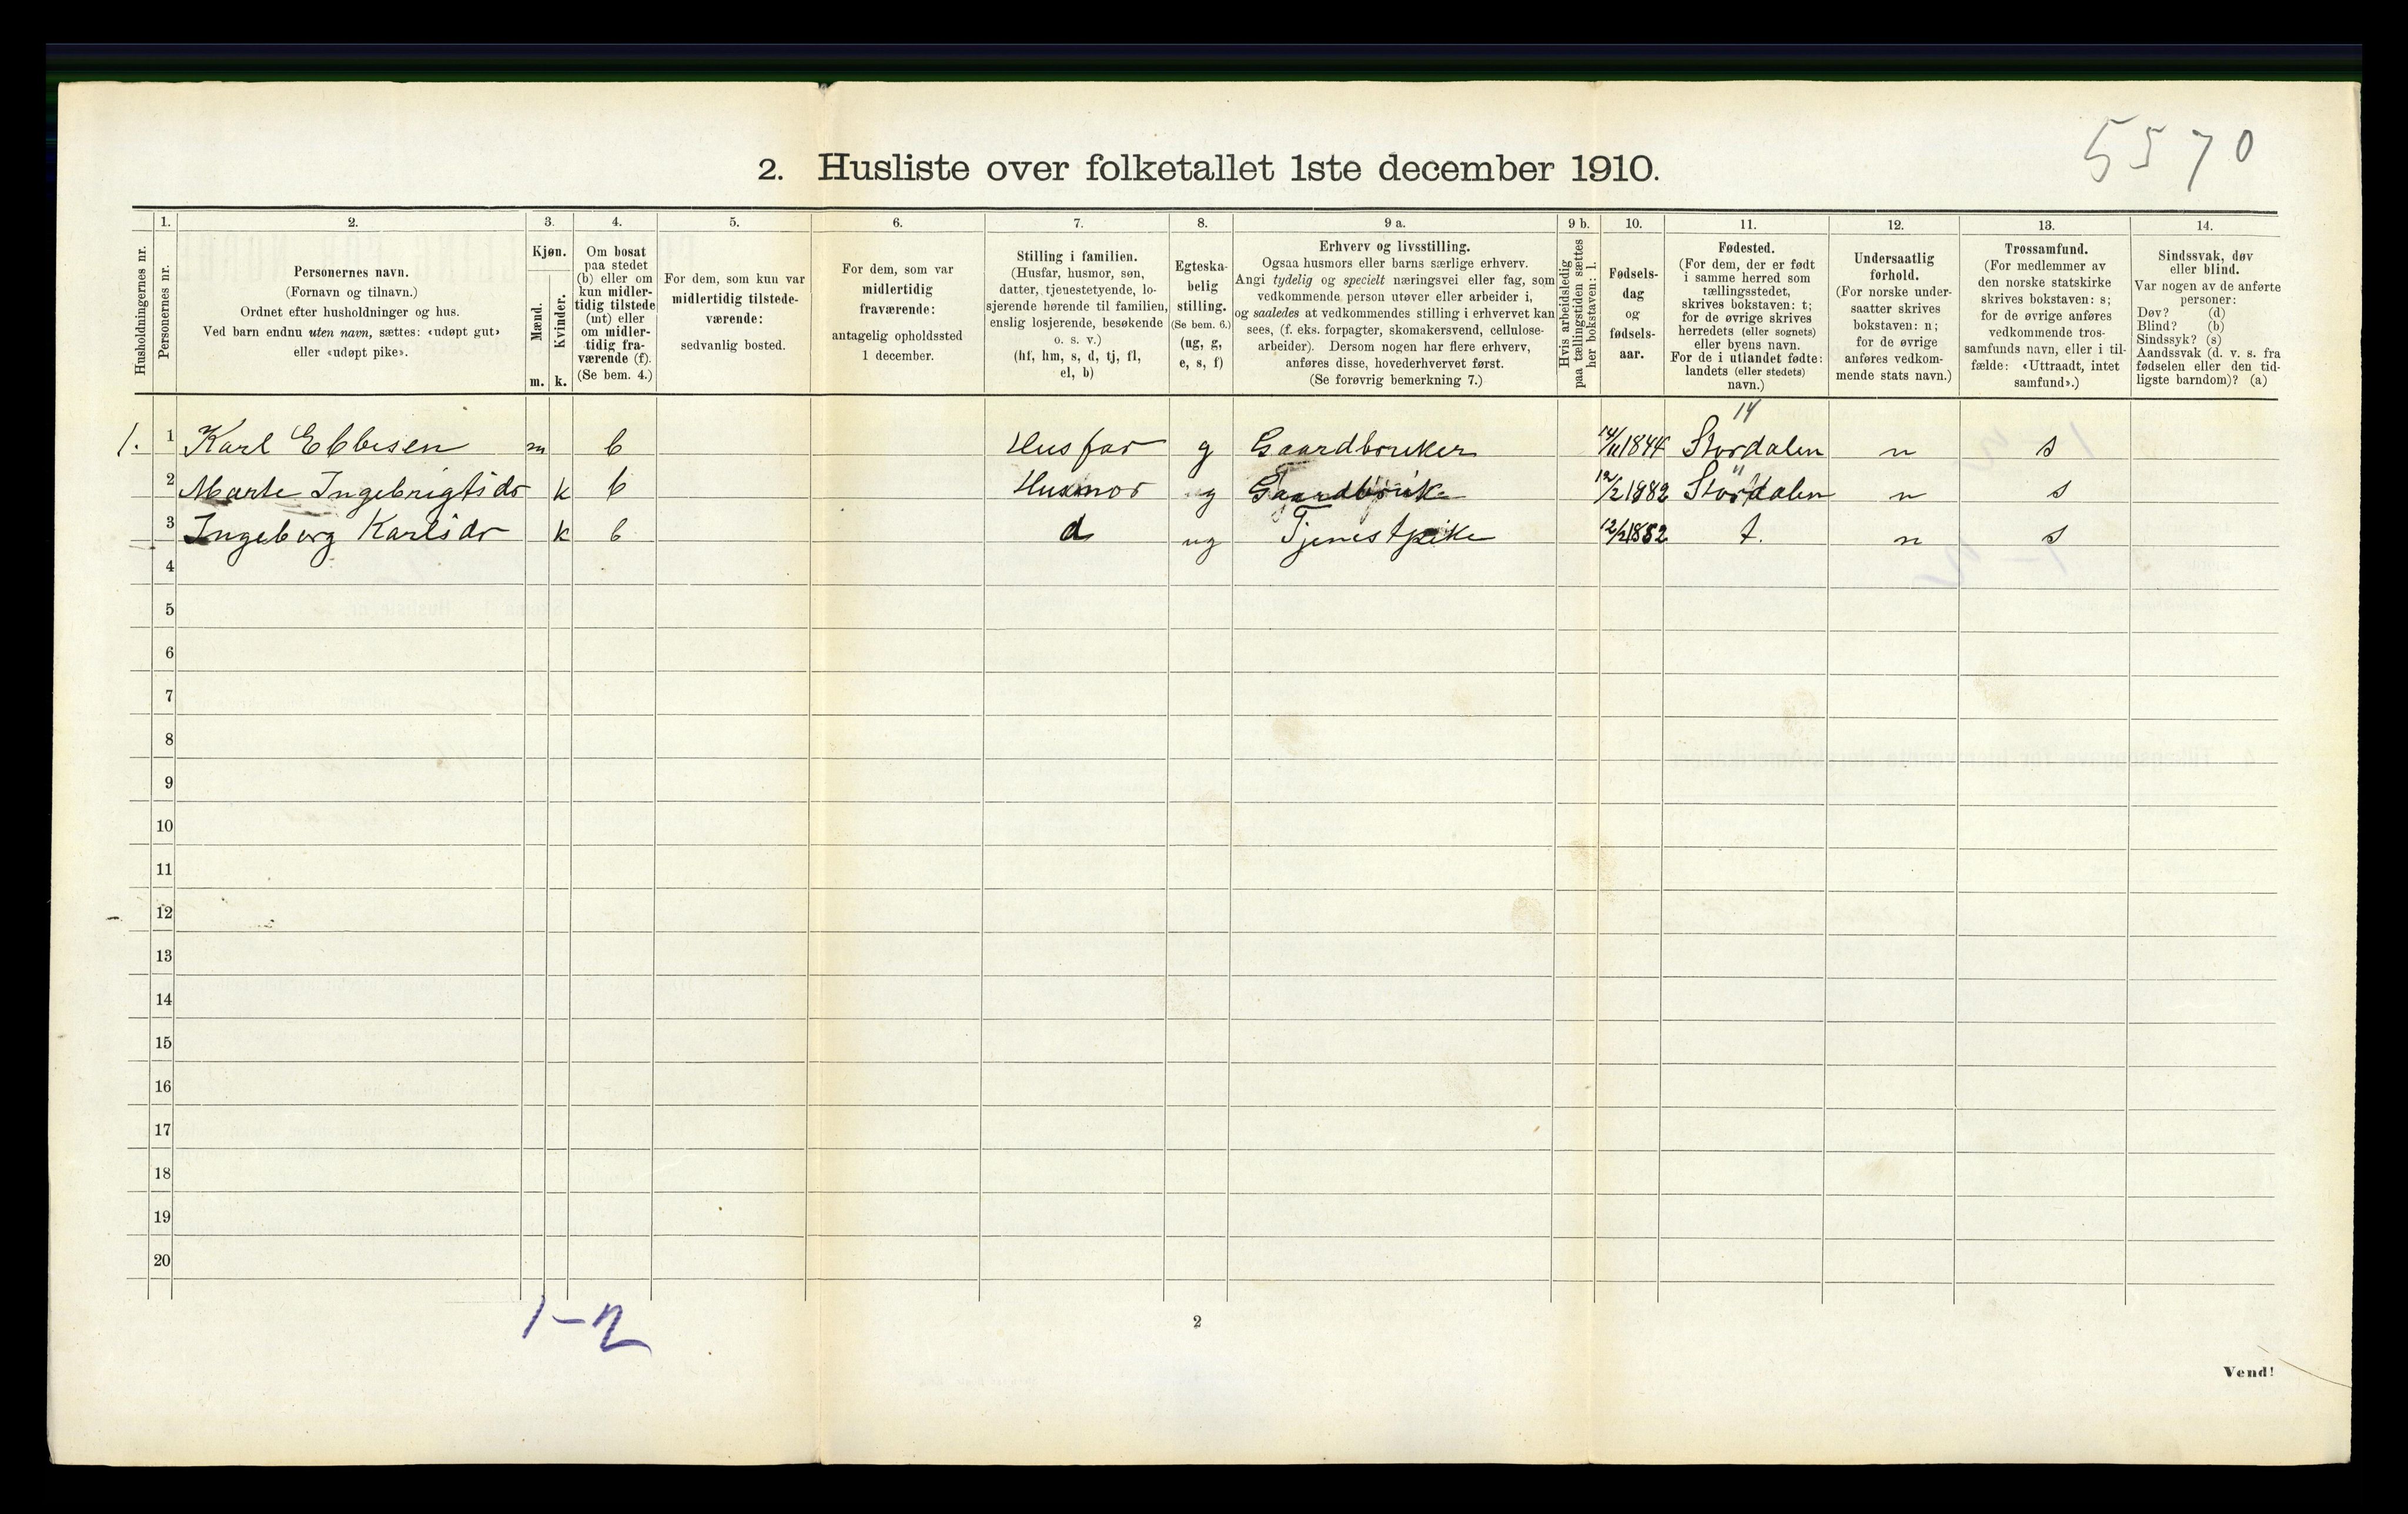 5570
2. Husliste over folketallet 1ste december 1910.
Husholdningernes nr.
1.
Personernes nr.
2.
Personernes navn.
(Fornavn og tilnavn.)
Ordnet efter husholdninger og hus.
Ved barn endnu uten navn, sættes: «udøpt gut»
eller «udøpt pike».
3.
Kjøn.
Mænd.
Kvinder.
m. k.
4.
Om bosat
paa stedet
(b) eller om
kun midler-
tidig tilstede
(mt) eller
om midler-
tidig fra-
værende (f).
(Se bem. 4.)
5.
For dem, som kun var
midlertidig tilstede-
værende:
sedvanlig bosted.
6.
For dem, som var
midlertidig
fraværende:
antagelig opholdssted
1 december.
7.
Stilling i familien.
(Husfar, husmor, søn,
datter, tjenestetyende, lo-
sjerende hørende til familien,
enslig losjerende, besøkende
o. s. v.)
(hf, hm, s, d, tj, fl,
el, b)
8.
Egteska-
belig
stilling.
(Se bem. 6.)
(ug, g,
e, s, f)
9 a.
Erhverv og livsstilling.
Ogsaa husmors eller barns særlige erhverv.
Angi tydelig og specielt næringsvei eller fag, som
vedkommende person utøver eller arbeider i,
og saaledes at vedkommendes stilling i erhvervet kan
sees, (f. eks. forpagter, skomakersvend, cellulose-
arbeider). Dersom nogen har flere erhverv,
anføres disse, hovederhvervet først.
(Se forøvrig bemerkning 7.)
9 b.
Hvis arbeidsledig
paa tællingstiden sættes
her bokstaven: l.
10.
Fødsels-
dag
og
fødsels-
aar.
11.
Fødested.
(For dem, der er født
i samme herred som
tællingsstedet,
skrives bokstaven: t;
for de øvrige skrives
herredets (eller sognets)
eller byens navn.
For de i utlandet fødte:
landets (eller stedets)
navn.)
12.
Undersaatlig
forhold.
(For norske under-
saatter skrives
bokstaven: n;
for de øvrige
anføres vedkom-
mende stats navn.)
13.
Trossamfund.
(For medlemmer av
den norske statskirke
skrives bokstaven: s;
for de øvrige anføres
vedkommende tros-
samfunds navn, eller i til-
fælde: «Uttraadt, intet
samfund».)
14.
Sindssvak, døv
eller blind.
Var nogen av de anførte
personer:
Døv? (d)
Blind? (b)
Sindssyk? (s)
Aandssvak (d. v. s. fra
fødselen eller den tid-
ligste barndom)? (a)
14
1. 1 Karl Ebbesen m b Husfar g Gaardbruker 14/11 1844 Stordalen n s
2 Marte Ingebrigtsdr k b Husmor g Stordalen n s
3 Ingeborg Karlsdr k b d ug Tjenestpike 12/2 1882 t. n s
4
5
6
7
8
9
10
11
12
13
14
15
16
17
18
19
20
1-2
2
Vend!